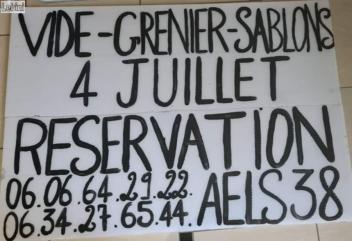 VIDE-GRENIER-SABLONS
4 JUILLET
RESERVATION
06.06.64.29.22.
06.34.27.65.44. AELS38